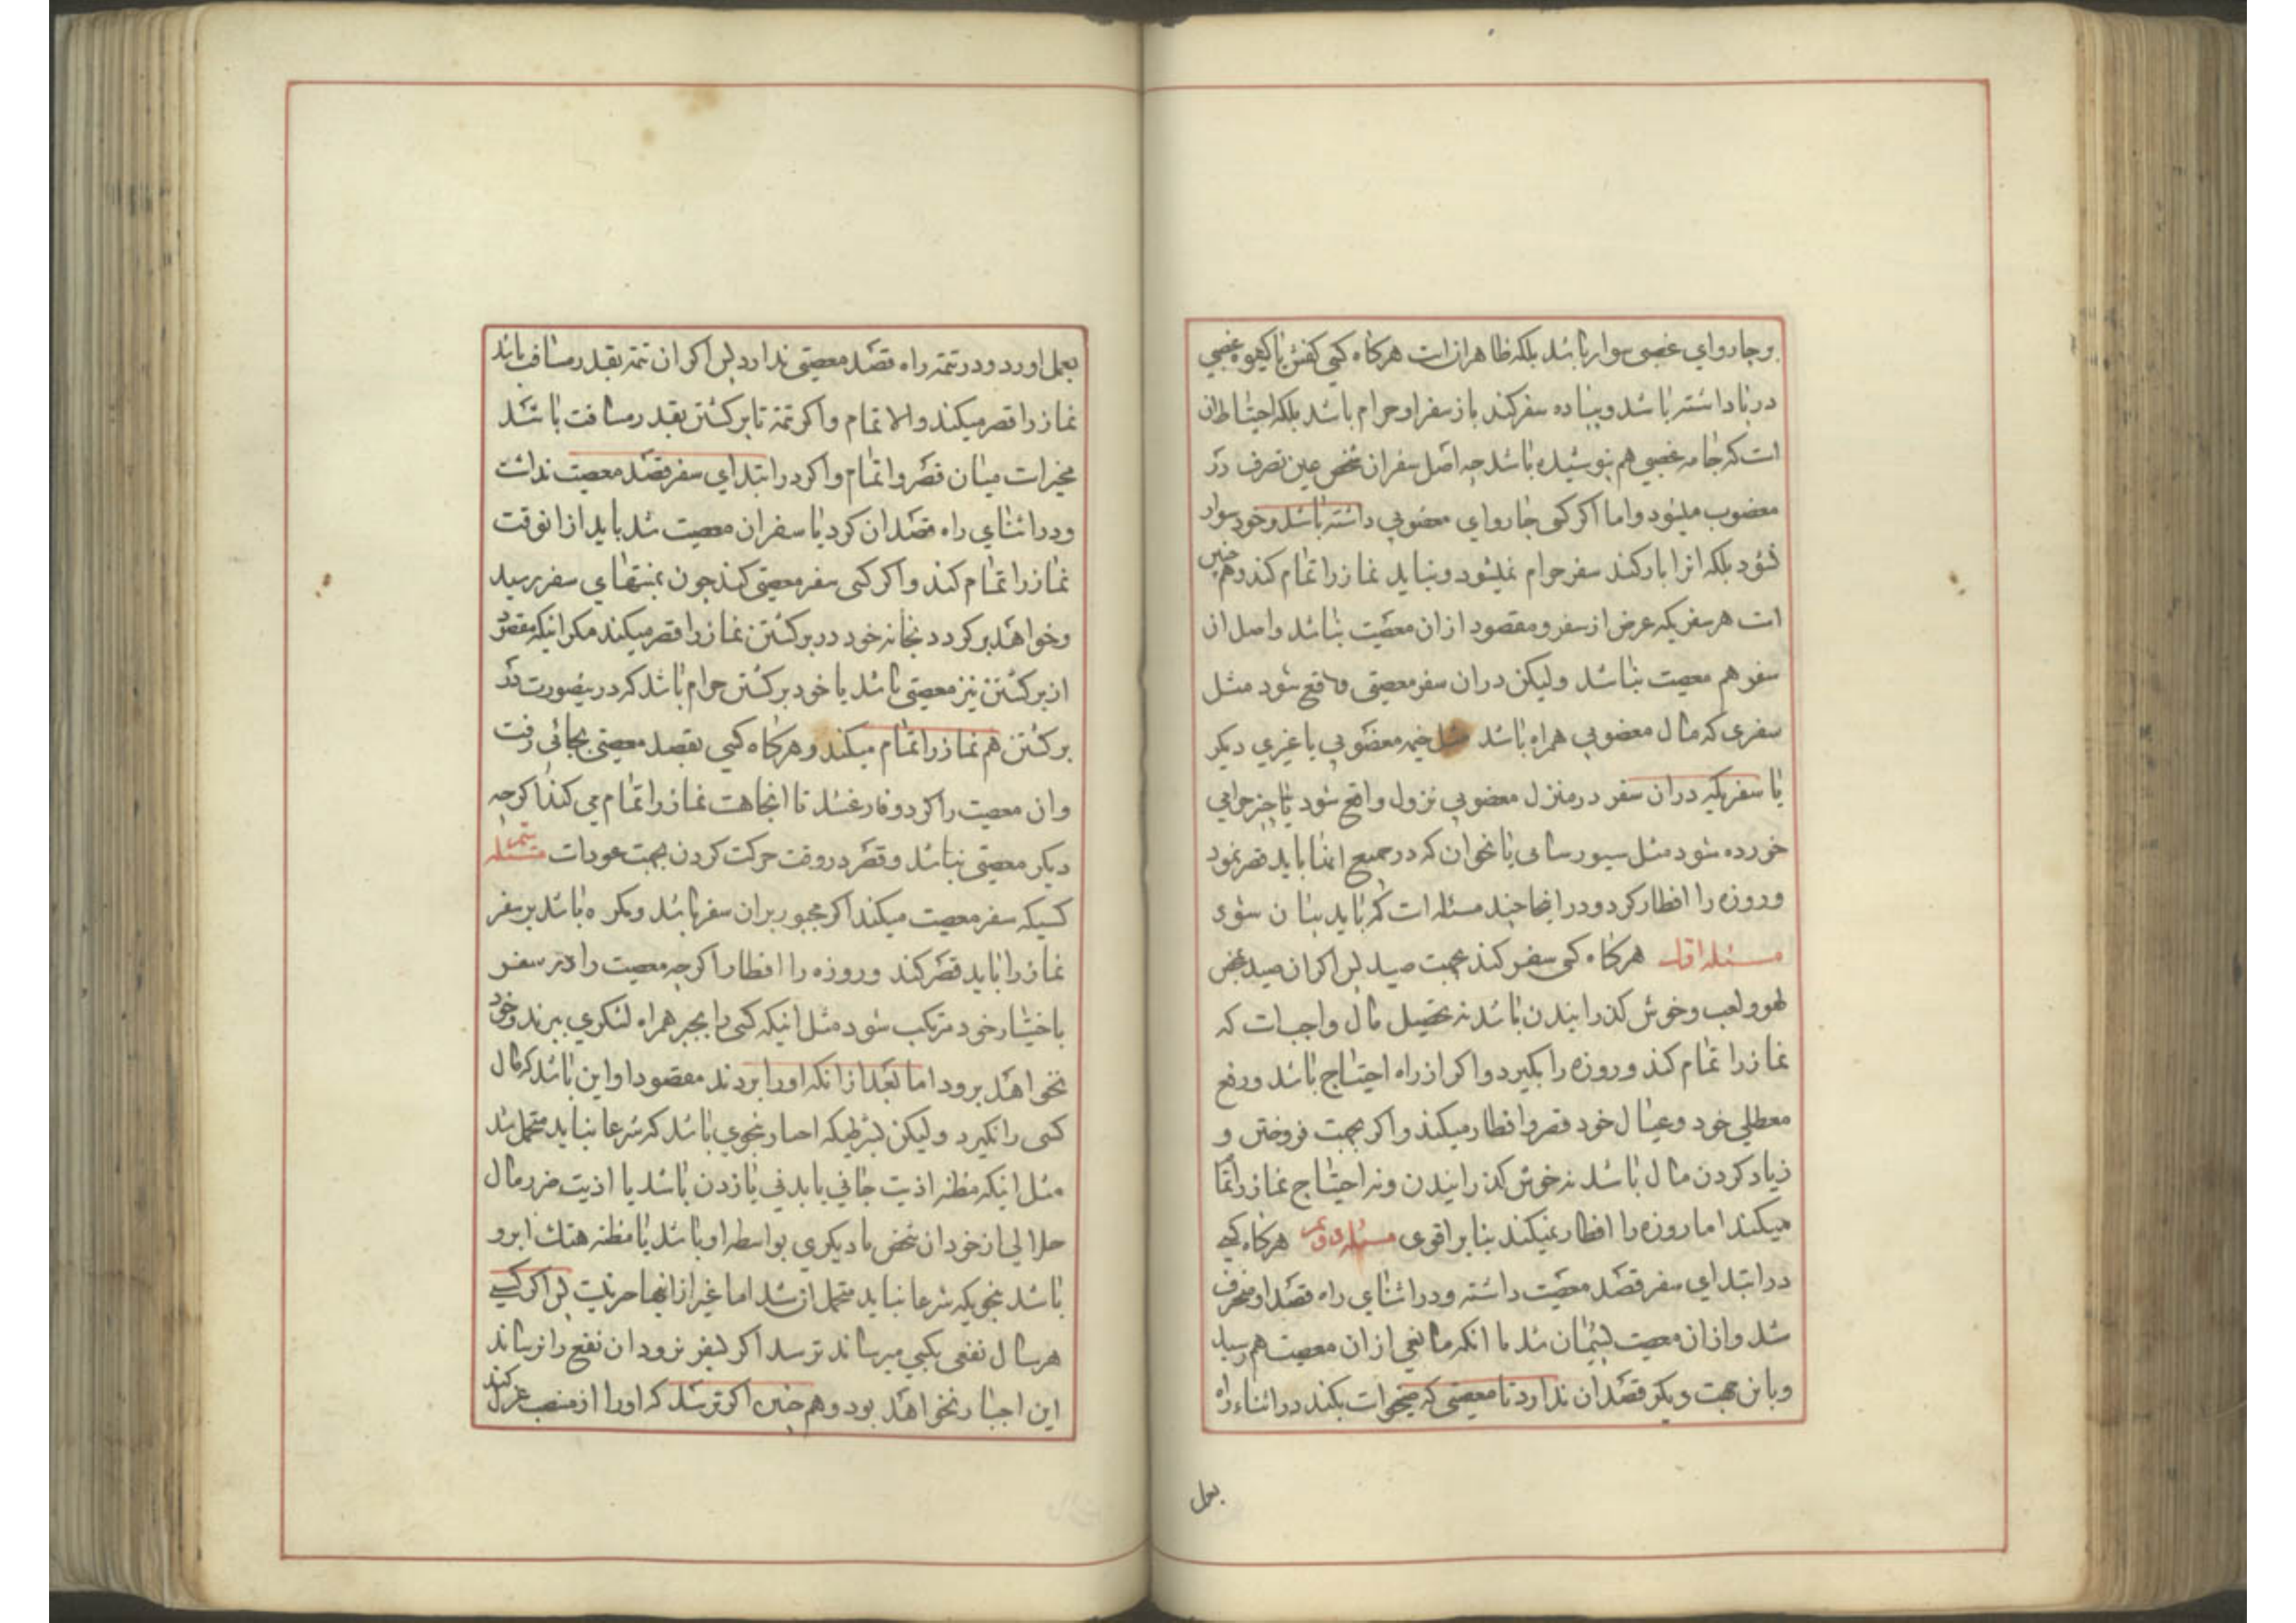 وچاروای غصبی سوار باشد بلکه ظاهر انست هرکاه کسی کفش یا کیوه غصبی
در پا داشته باشد و پیاده سفر کند باز سفر او حرام باشد بلکه احتیاط ان
است که جامه غصبی هم پوشیده باشد چه اصل سفر ان شخص عین تصرف در
مغصوب میشود و اما اکر کسی چاروای مغصوبی داشته باشد و خود سوار
نشود بلکه انرا بار کند سفر حرام نمیشود و نباید نماز را تمام کند و هم چنین
است هر سفریکه غرض از سفر و مقصود از ان معصیت نباشد و اصل ان
سفر هم معصیت نباشد ولیکن در ان سفر معصیتی واقع شود مثل
سفری که مال مغصوبی همراه باشد مثل خیمه مغصوبی یا غیری دیکر
یا سفریکه در ان سفر در منزل مغصوبی نزول واقع شود یا چیز حرامی
خورده شود مثل سیورسات یا نحو ان که در جمیع اینها باید قصر نمود
و روزه را افطار کرد و در اینجا چند مسئله است که باید بیان شود
مسئله اول هرکاه کسی سفر کند بجهت صید پس اکر ان صید بمحض
لهو و لعب و خوش کذرانیدن باشد نه تحصیل مال واجبست که
نماز را تمام کند و روزه را بکیرد و اکر از راه احتیاج باشد و رفع
معطلی خود و عیال خود قصر و افطار میکند و اکر بجهت فروختن و
زیاد کردن مال باشد نه خوش کذرانیدن و نه احتیاج نماز را تمام
میکند اما روزه را افطار نمیکند بنا بر اقوی مسئله دویم هرکاه کسی
در ابتدای سفر قصد معصیت داشته و در اثنای راه قصد او منحرف
شد و از ان معصیت پشیمان شد یا انکه مانعی از ان معصیت هم رسید
و باین جهت دیکر قصد ان ندارد تا معصیتی که میخواست بکند در اثناء راه
بعمل
بعمل اورد و در تتمه راه قصد معصیتی ندارد پس اکر ان تتمه بقدر مسافت باشد
نماز را قصر میکند والا تمام و اکر تتمه تا برکشتن بقدر مسافت باشد
مخیر است میان قصر و اتمام و اکر در ابتدای سفر قصد معصیت نداشت
و در اثنای راه قصد ان کرد یا سفر ان معصیت شد باید از انوقت
نماز را تمام کند و اکر کسی سفر معصیتی کند چون بمنتهای سفر رسید
و خواهد برکردد بخانه خود در برکشتن نماز را قصر میکند مکر اینکه مقصود
از برکشتن نیز معصیتی باشد یا خود برکشتن حرام باشد که در ینصورت در
برکشتن هم نماز را تمام میکند و هرکاه کسی بقصد معصیتی بجائی رفت
و ان معصیت را کرد و فارغ شد تا انجاهست نماز را تمام می کند اکرچه
دیکر معصیتی نباشد و قصر در وقت حرکت کردن بجهت عود است مسئله سیم
کسیکه سفر معصیت میکند اکر مجبور بر ان سفر باشد و مکره باشد بر سفر
نماز را باید قصر کند و روزه را افطار اکرچه معصیت را در سفر
باختیار خود مرتکب شود مثل اینکه کسی را بجبر همراه لشکری ببرند و خود
نخواهد برود اما بعد از انکه او را بردند مقصود او این باشد که مال
کسی را بکیرد ولیکن بشرطیکه اجبار بنحوی باشد که شرعا نباید متحمل شد
مثل اینکه مظنه اذیت جانی یا بدنی یا زدن باشد یا اذیت ضرر مال
حلالی از خود ان شخص یا دیکری بواسطه او باشد یا مظنه هتك ابرو
باشد بنحویکه شرعا نباید متحمل ان شد اما غیر از اینها جبر نیست پس اکر کسی
هرسال نفعی بکسی میرساند ترسد اکر بسفر نرود ان نفع را نرساند
این اجبار نخواهد بود و هم چنین اکر ترسد که او را از منصب عزل کند